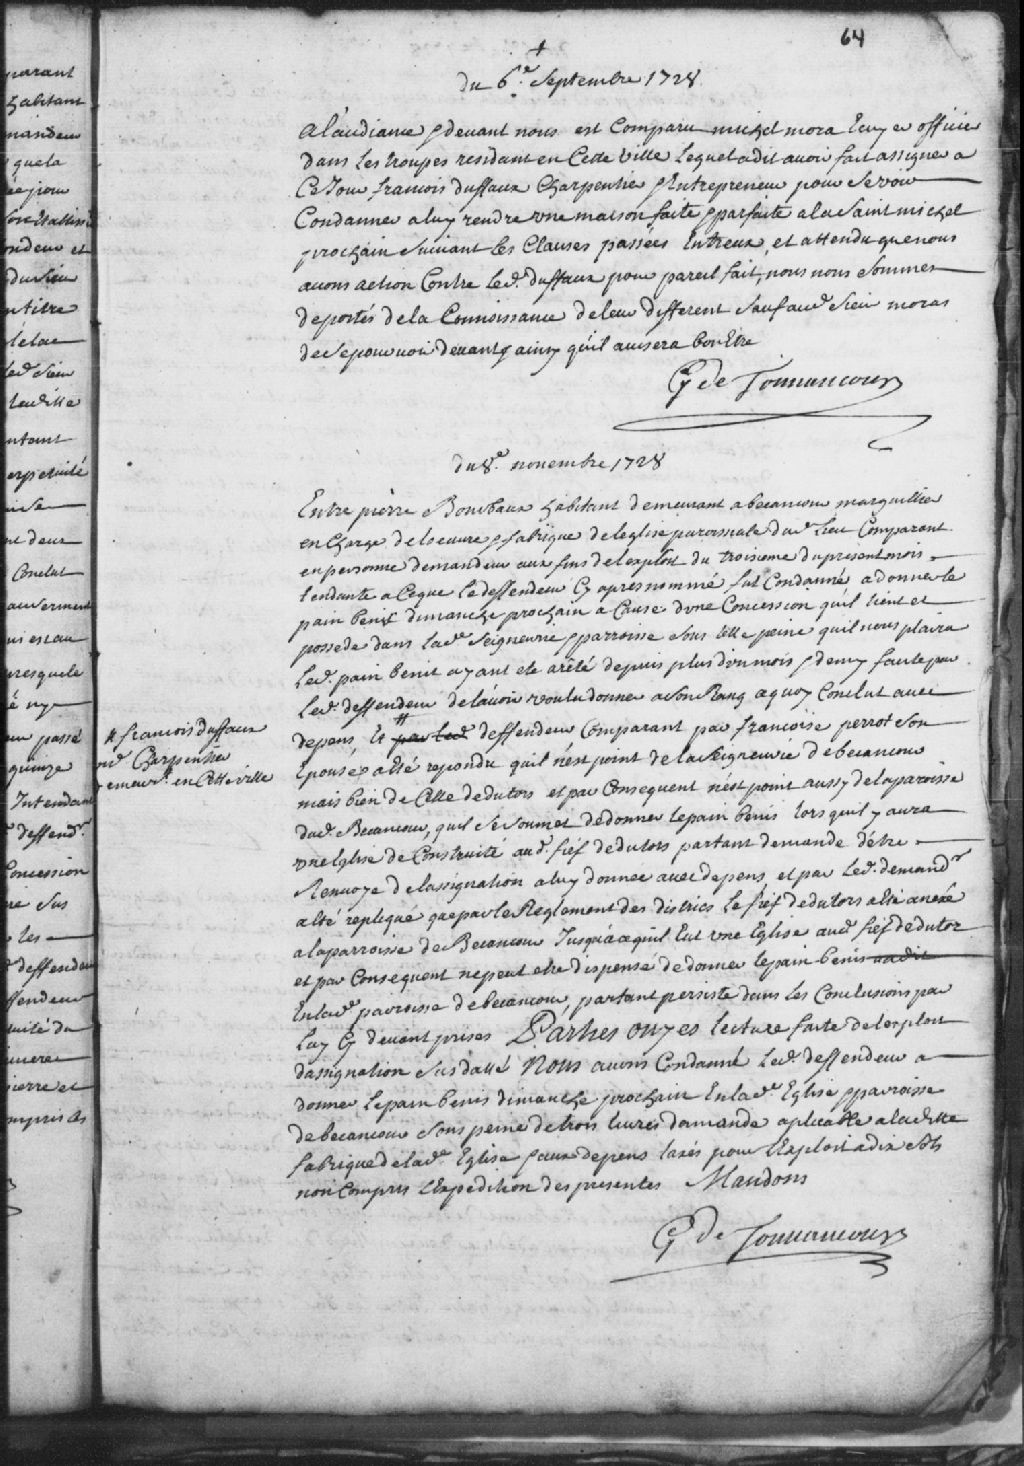 64
du 6e. Septembre 1728
A laudiance & devant nous est Comparu michel mora Ecuyer officier
dans les troupes residant en Cette ville lequel a dit avoir fait assigner a
Ce Jour francois duffaux Charpentier & Entrepreneur pour se voir
Condanner a luy rendre une maison faite & parfaite a la Saint michel
prochain suivant les Clauses passées Entreux, et attendu que nous
avons action Contre led. duffaux pour pareil fait, nous nous Sommes
deportés de la Connoissance de leur different sauf aud Sieur moras
de se pourvoir devant & ainsy qu'il avisera bon Etre
G de Tonnancour
du 8e. novembre 1728
Entre pierre Bourbaux habitant demeurant a becancour marguillier
en Charge de loeuvre & fabrique de leglise paroissiale dud lieu Comparant
en personne demandeur aux fins de lexploit du troisieme du present mois
tendante a Ceque le deffendeur Cy apres nommé fut Condanné a donner le
pain benit dimanche prochain a Cause dune Concession quil tient et
possede dans lade Seigneurie & parroisse sous telle peine quil nous plaira
led. pain benit ayant eté arêté depuis plus d'un mois & demy faute par
led deffendeur de lavoir voulu donner a son Rang a quoy Conclut avec
depens, Et # par led deffendeur Comparant par francoise perrot son
Epouse a eté repondu quil n'est point de la Seigneurie de becancour
mais bien de Celle dedutors et par Consequent n'est point aussy de la paroisse
dud. Becancour, quil se soumet de donner le pain benis lors quil y aura
une Eglise de Construité aud. fief dedutors partant demande d'être
Renvoye de lassignation a luy donnée avec depens et par led. demandr
a eté repliqué que par le Reglement des districs le fief dedutors a eté anexé
a la parroisse de Becancour Jusqu'a ce quil Eut une Eglise aud fief dedutor
et par Consequent ne peut etre dispensé de donner le pain benis audit
En lade parroisse de becancour, partant persiste dans les Conclusions par
luy Cy devant prises Parties ouyes lecture faite de lexploit
dassignation susdatté Nous avons Condanné led. deffendeur a
donner le pain benis dimanche prochain En lade Eglise & parroisse
de becancour sous peine de trois livres damande aplicable a laditte
fabrique de lade Eglise & aux depens taxés pour l'Exploit a dix sols
non Compris l'Expedition des presentes Mandons
G de Tonnancour
# francois duffaux
Charpentier
demeurt. en Cette ville